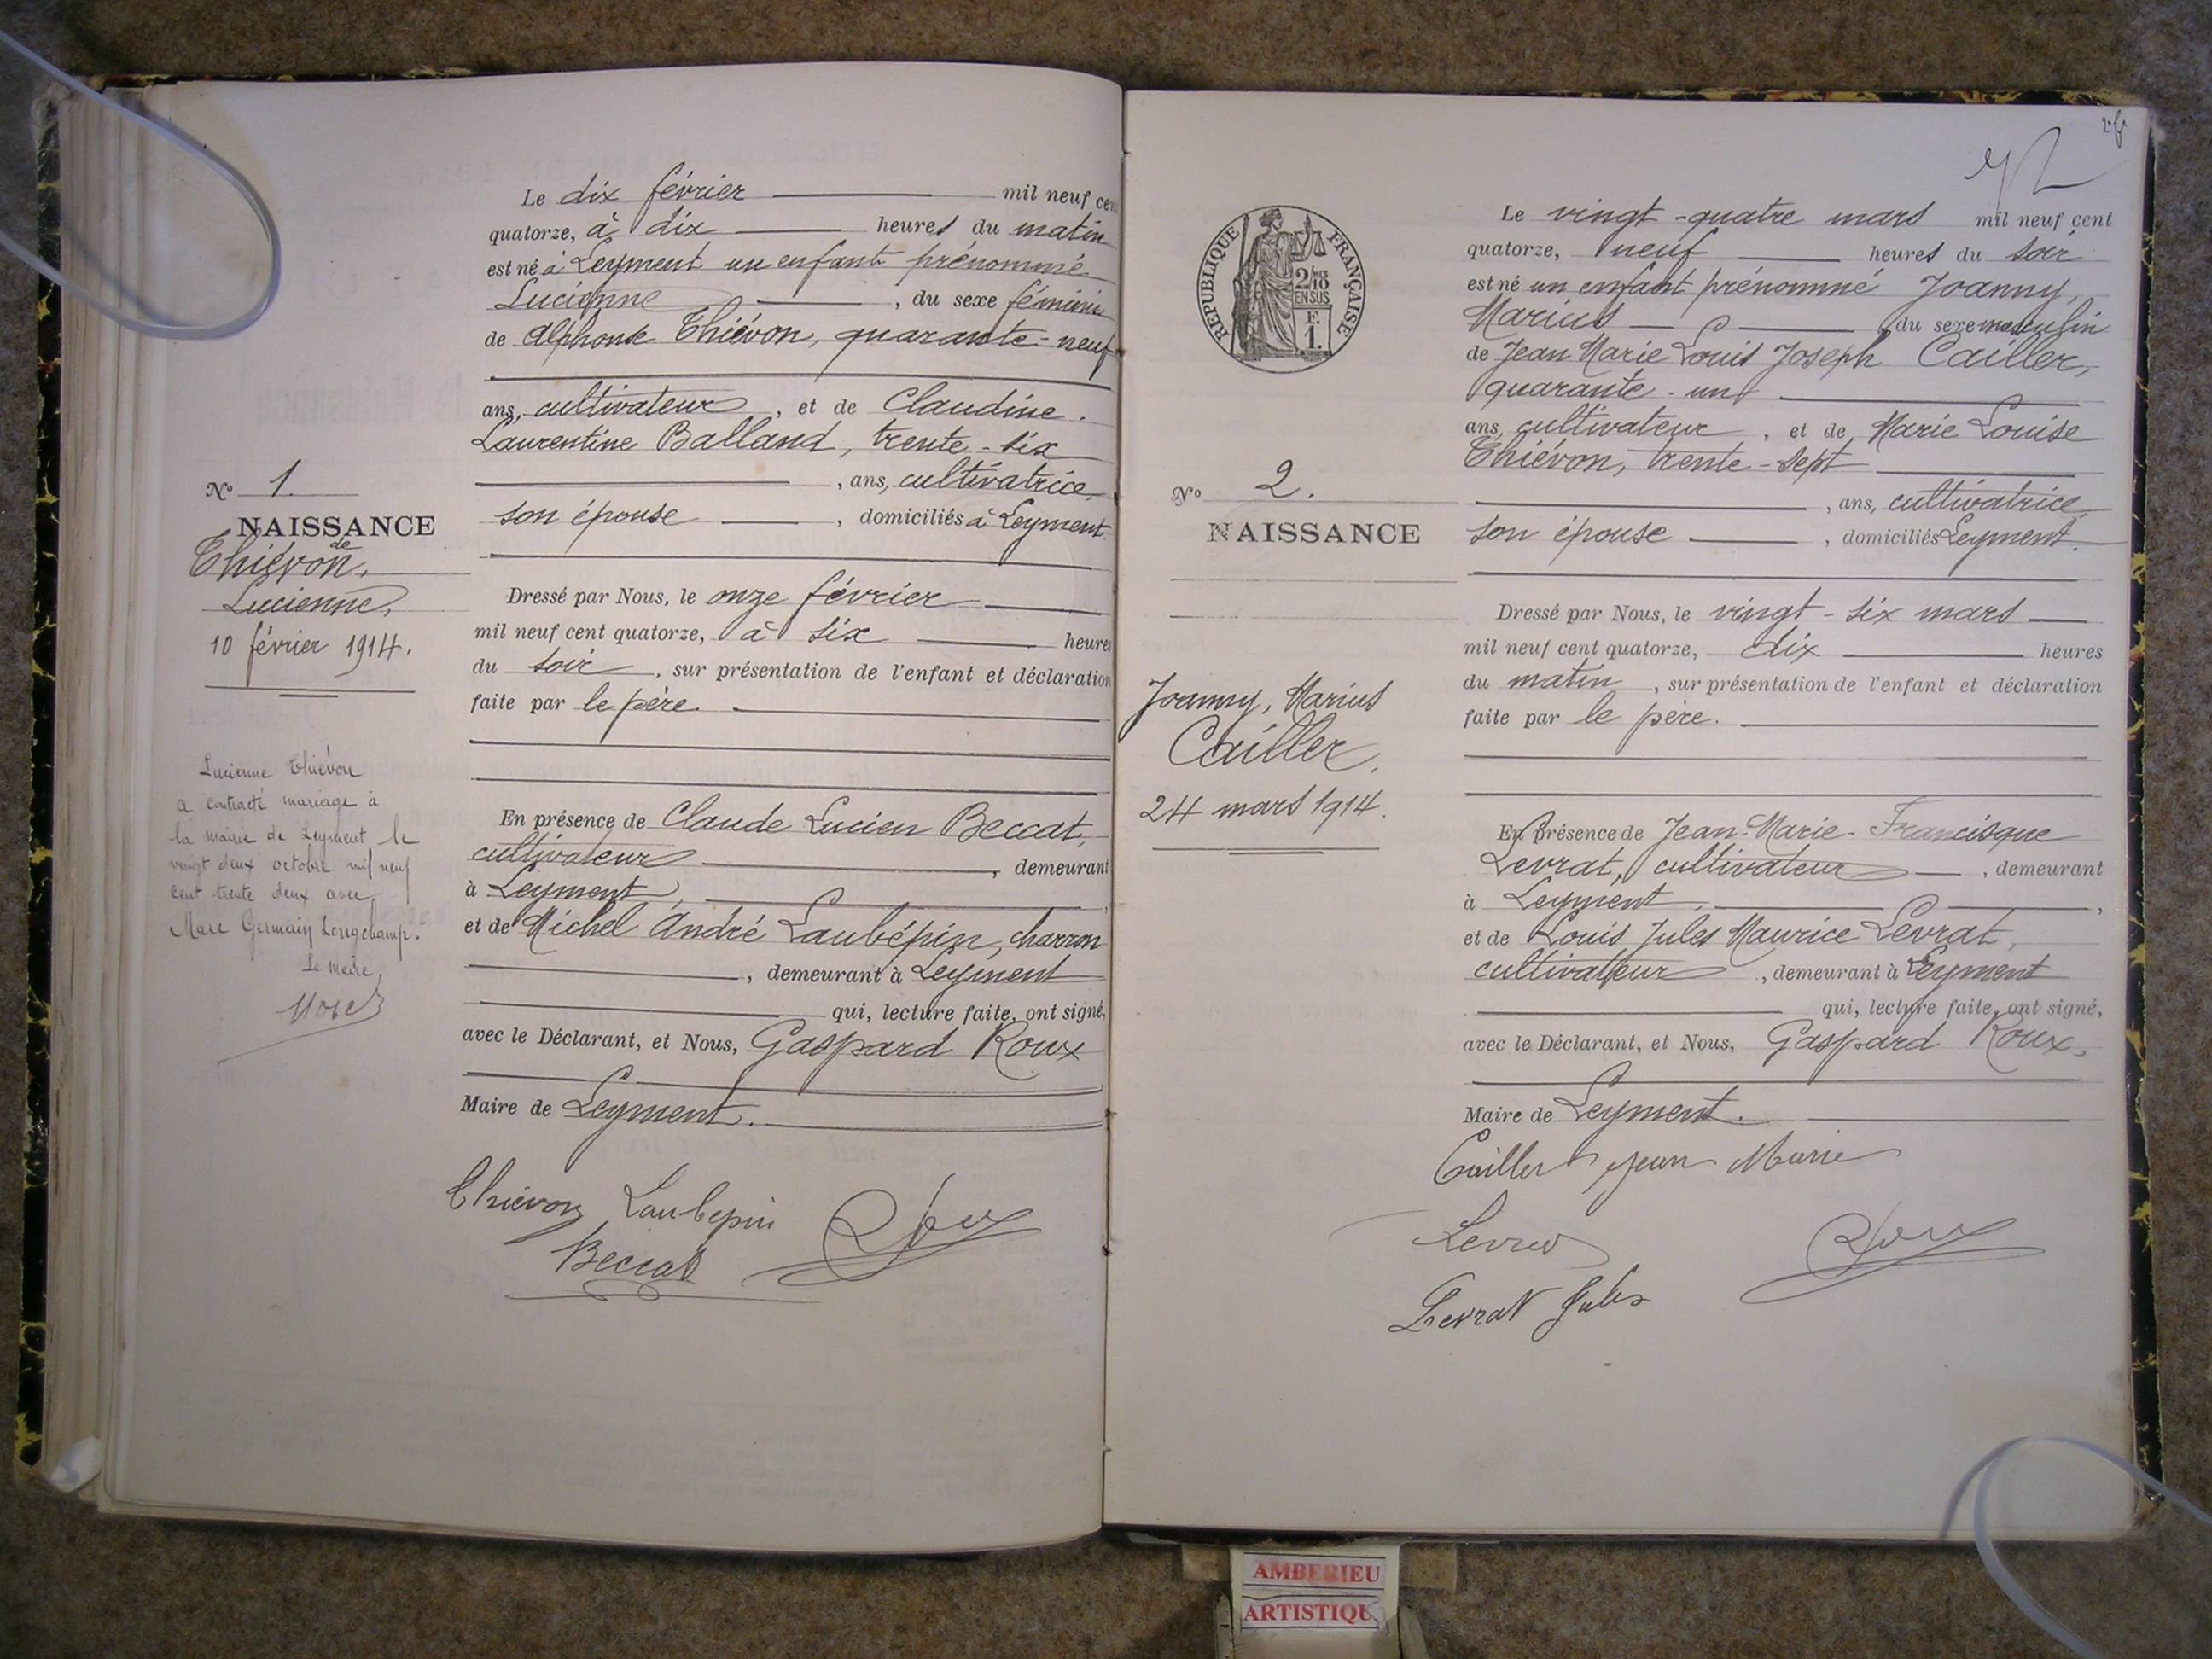 Le dix février mil neuf cen
quatorze, à dix heures du matin
est né à Leyment un enfant prénommé
Lucienne , du sexe féminin
de Alphonse Thiévon, quarante-neuf
ans, cultivateur , et de Claudine
Laurentine Balland, trente-six
, ans, cultivatrice,
son épouse , domiciliés à Leyment.
N° 1.
NAISSANCE
de
Thiévon,
Lucienne,
10 février 1914.
Dressé par Nous, le onze février
mil neuf cent quatorze, à six heures
du soir , sur présentation de l'enfant et déclaration
faite par le père.
Lucienne Thiévon
a contracté mariage à
la mairie de Leyment le
vingt deux octobre mil neuf
cent trente deux avec
Marc Germain Longchamp.
Le maire,
En présence de Claude Lucien Beccat,
cultivateur , demeurant
à Leyment,
et de Michel André Laubépin, charron
, demeurant à Leyment
qui, lecture faite, ont signé,
avec le Déclarant, et Nous, Gaspard Roux
Maire de Leyment.
Thiévon Laubepin Roux
Beccat
RÉPUBLIQUE FRANÇAISE
2/10
EN SUS
F.
1.
Le vingt-quatre mars mil neuf cent
quatorze, neuf heures du soir
est né un enfant prénommé Joanny,
Marius , du sexe masculin
de Jean Marie Louis Joseph Cailler,
quarante-un
ans, cultivateur , et de Marie Louise
Thiévon, trente-sept
, ans, cultivatrice,
son épouse , domiciliés Leyment.
N° 2.
NAISSANCE
Joanny, Marius
Cailler.
24 mars 1914.
Dressé par Nous, le vingt-six mars
mil neuf cent quatorze, dix heures
du matin , sur présentation de l'enfant et déclaration
faite par le père.
En présence de Jean-Marie-Francisque
Levrat, cultivateur , demeurant
à Leyment ,
et de Louis Jules Maurice Levrat,
cultivateur , demeurant à Leyment
qui, lecture faite, ont signé,
avec le Déclarant, et Nous, Gaspard Roux,
Maire de Leyment.
Cailler Jean Marie
Levrat Roux
Levrat Jules
AMBERIEU
ARTISTIQU